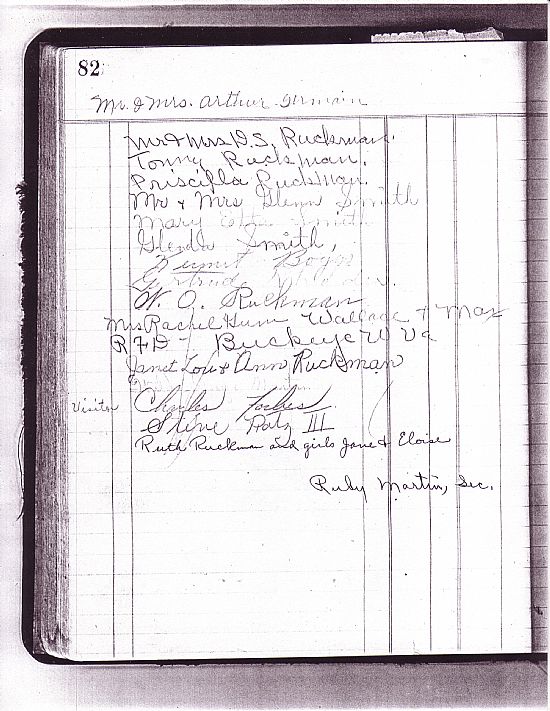 82
Mr. & Mrs. Arthur
Mr & Mrs D. S. Ruckman.
Tommy Ruckman.
Priscilla Ruckman.
Mr & Mrs Glenn Smith
Mary Smith
Glenda Smith,
Kermit Boggs
W. O. Ruckman
Mrs Rachel Wallace & Max
R F D - Buckeye W Va
Janet Lou & Ann Ruckman
Visitor Charles Forbes.
III
Ruth Ruckman and girls Jane & Eloise
Ruby Martin, Sec.